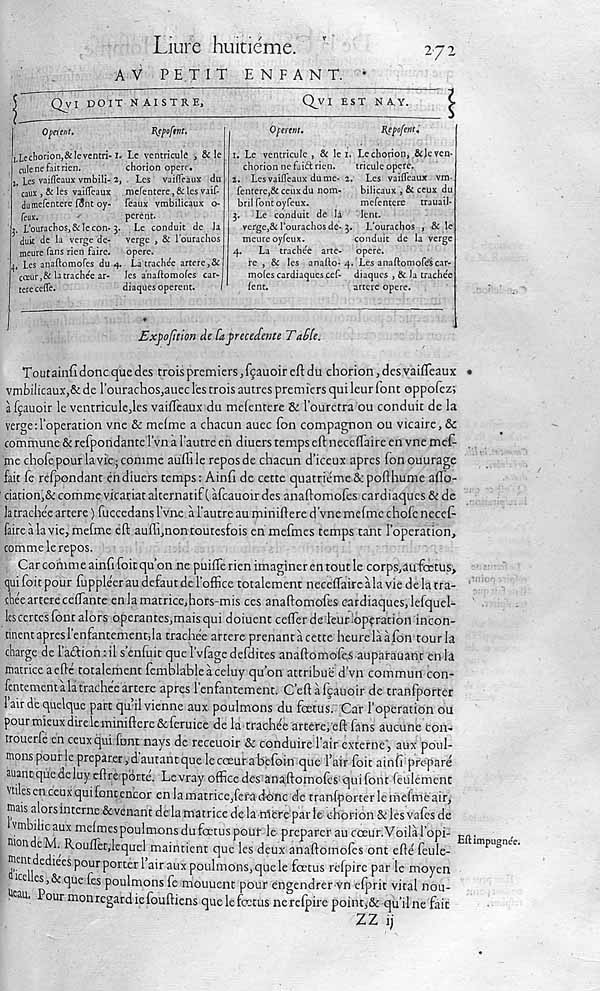 Liure huitiéme. 272
AV PETIT ENFANT.
QVI DOIT NAISTRE,
Operent.
1. Le chorion, & le ventri-
cule ne fait rien.
2. Les vaiſſeaux vmbili-
caux, & les vaiſſeaux
du meſentere ſont oy-
ſeux.
3. L'ourachos, & le con-
duit de la verge de-
meure ſans rien faire.
4. Les anaſtomoſes du
cœur, & la trachée ar-
tere ceſſe.
Repoſent.
1. Le ventricule, & le
chorion opere.
2, Les vaiſſeaux du
meſentere, & les vaiſ-
ſeaux vmbilicaux o-
perent.
3. Le conduit de la
verge, & l'ourachos
opere.
4. La trachée artere, &
les anaſtomoſes car-
diaques operent.
QVI EST NAY.
Operent.
1. Le ventricule, & le
chorion ne faict rien.
2. Les vaiſſeaux du me-
ſentere, & ceux du nom-
bril ſont oyſeux.
3. Le conduit de la
verge, & l'ourachos de-
meure oyſeux.
4. La trachée arte-
re, & les anaſto-
moſes cardiaques ceſ-
ſent.
Repoſent.
1. Le chorion, & le ven-
tricule opere.
2. Les vaiſſeaux vm-
bilicaux, & ceux du
meſentere trauail-
lent.
3. L'ourachos, & le
conduit de la verge
opere.
4. Les anaſtomoſes car-
diaques, & la trachée
artere opere.
Expoſition de la precedente Table.
Tout ainſi donc que des trois premiers, ſçauoir eſt du chorion, des vaiſſeaux
vmbilicaux, & de l'ourachos, auec les trois autres premiers qui leur ſont oppoſez;
à ſçauoir le ventricule, les vaiſſeaux du meſentere & l'ouretra ou conduit de la
verge: l'operation vne & meſme a chacun auec ſon compagnon ou vicaire, &
commune & reſpondante l'vn a l'autre en diuers temps eſt neceſſaire en vne meſ-
me choſe pour la vie; comme auſſi le repos de chacun d'iceux apres ſon ouurage
fait ſe reſpondant en diuers temps: Ainſi de cette quatriéme & poſthume aſſo-
ciation, & comme vicariat alternatif (aſcauoir des anaſtomoſes cardiaques & de
la trachée artere) ſuccedans l'vne à l'autre au miniſtere d'vne meſme choſe neceſ-
ſaire à la vie, meſme eſt auſſi, non toutesfois en meſmes temps tant l'operation,
comme le repos.
Car comme ainſi ſoit qu'on ne puiſſe rien imaginer en tout le corps, au fœtus,
qui ſoit pour ſuppléer au defaut de l'office totalement neceſſaire à la vie de la tra-
chée artere ceſſante en la matrice, hors-mis ces anaſtomoſes cardiaques, leſquel-
les certes ſont alors operantes, mais qui doiuent ceſſer de leur operation incon-
tinent apres l'enfantement; la trachée artere prenant à cette heure là à ſon tour la
charge de l'action: il s'enſuit que l'vſage deſdites anaſtomoſes auparauant en la
matrice a eſté totalement ſemblable à celuy qu'on attribuë d'vn commun con-
ſentement à la trachée artere apres l'enfantement. C'eſt à ſçauoir de tranſporter
l'air de quelque part qu'il vienne aux poulmons du fœtus. Car l'operation ou
pour mieux dire le miniſtere & ſeruice de la trachée artere, eſt ſans aucune con-
trouerſe en ceux qui ſont nays de receuoir & conduire l'air externe, aux poul-
mons pour le preparer, d'autant que le cœur a beſoin que l'air ſoit ainſi preparé
auant que de luy eſtre porté. Le vray office des anaſtomoſes qui ſont ſeulement
vtiles en ceux qui ſont encor en la matrice, ſera donc de tranſporter le meſme air,
mais alors interne & venant de la matrice de la mere par le chorion & les vaſes de
l'vmbilic aux meſmes poulmons du fœtus pour le preparer au cœur. Voilà l'opi-
nion de M. Rouſſet, lequel maintient que les deux anaſtomoſes ont eſté ſeule-
ment dediées pour porter l'air aux poulmons, que le fœtus reſpire par le moyen
d'icelles, & que ſes poulmons ſe mouuent pour engendrer vn eſprit vital nou-
ueau. Pour mon regard ie ſouſtiens que le fœtus ne reſpire point, & qu'il ne fait
Eſt impugnée.
ZZ ij